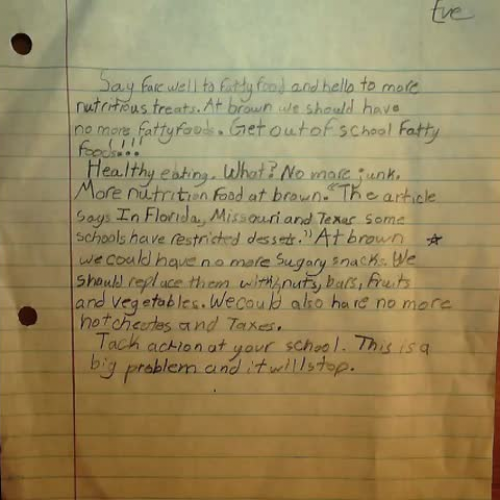 Eve
Say fare well to fatty food and hello to more
nutritious treats. At brown we should have
no more fatty foods. Get out of school fatty
foods!!!
Healthy eating. What? No more junk.
More nutrition food at brown. "The article
says In Florida, Missouri and Texas some
schools have restricted dessets." At brown ☆
we could have no more sugary snacks. We
should replace them with, nuts, bars, fruits
and vegetables. We could also have no more
hot cheetos and Taxes.
Tack action at your school. This is a
big problem and it will stop.